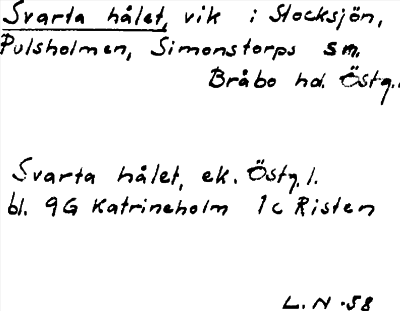 Svarta hålet, vik i Stocksjön,
Pulsholmen, Simonstorps sm.
Bråbo hd. Östg.
Svarta hålet, ek. Östg. l.
bl. 9G Katrineholm 1c Risten
L. N -58